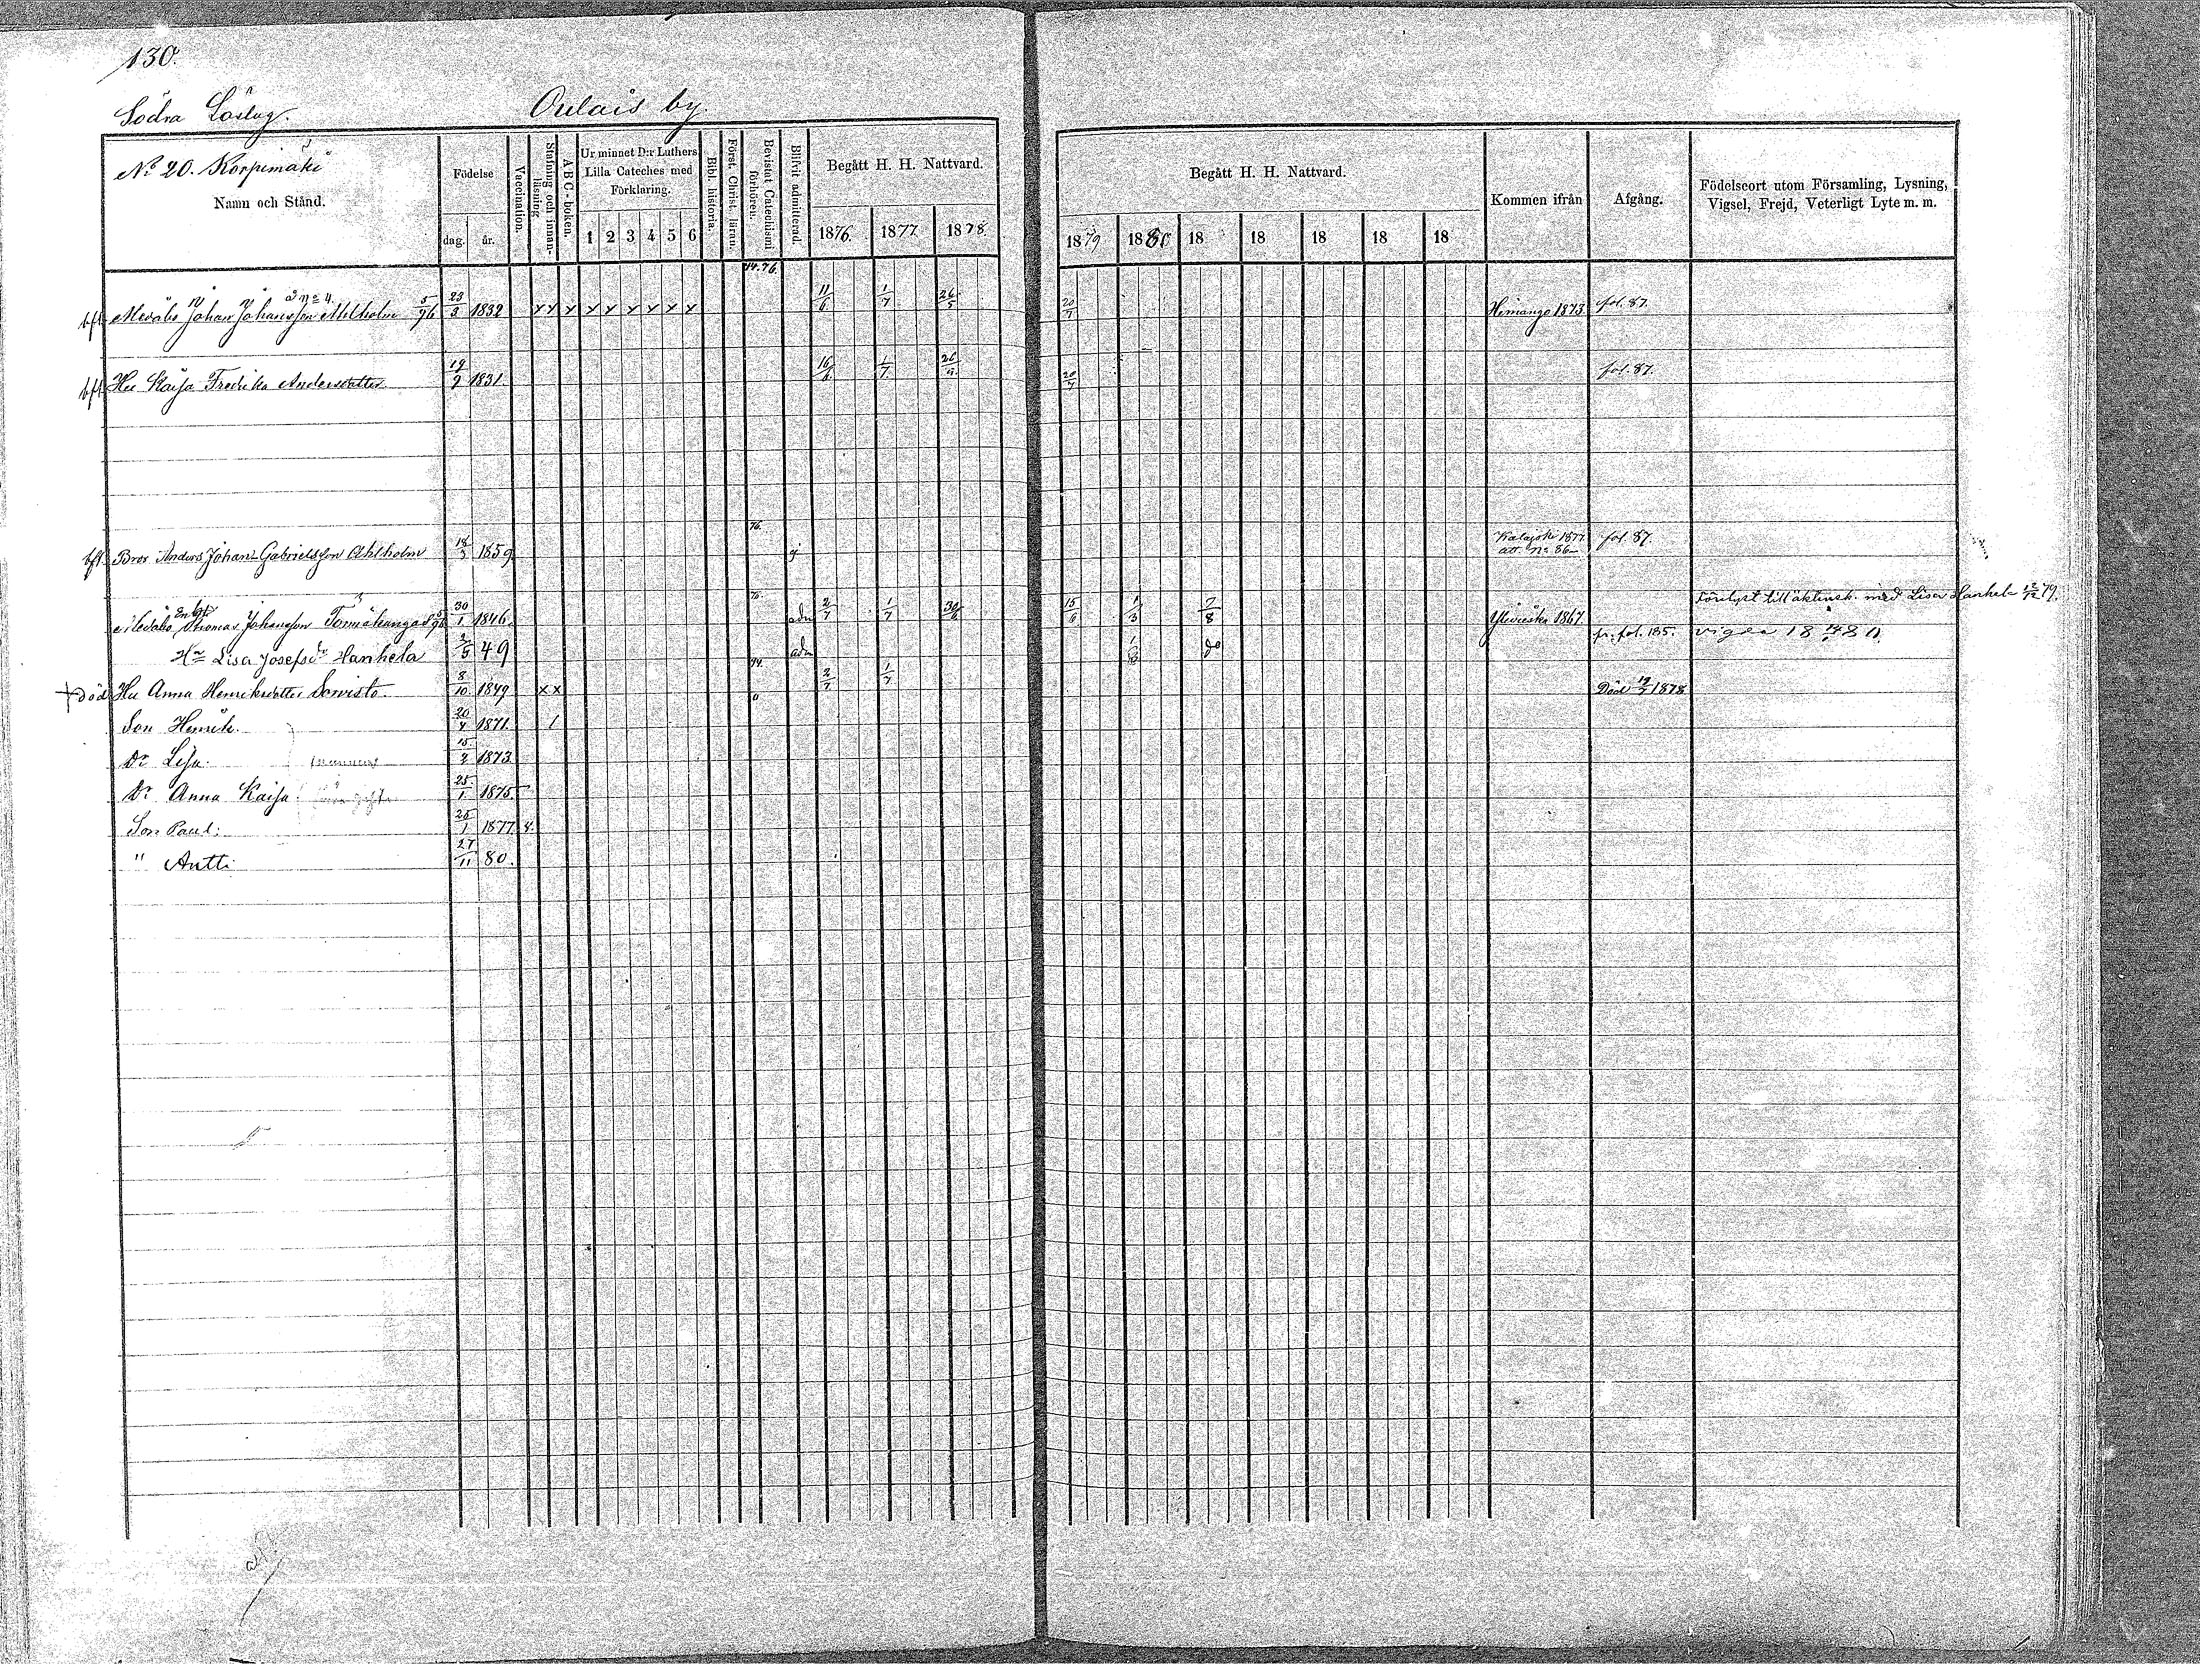 130.
Södra Låstag. Oulais by.
No 20. Korpimäki
Namn och Stånd.
Födelse
dag. år.
Vaccination.
Stafning och innan-läsning
A B C-boken.
Ur minnet D:r Luthers Lilla Cateches med Förklaring.
1 2 3 4 5 6
Bibl. historia.
Först. Christ. läran.
Bevistat Catechismi förhören.
Blifvit admitterad.
Begått H. H. Nattvard.
1876. 1877. 1878.
Begått H. H. Nattvard.
1879 1880 18 18 18 18 18
Kommen ifrån
Afgång.
Födelseort utom Församling, Lysning, Vigsel, Frejd, Veterligt Lyte m. m.
bfl. Johan Johansson Ahlholm 5/96 23/3 1832 x x x x x x x x x 11/6 1/7 26/5 20/7 Himango 1873 fol. 87.
bfl. Hu Kaisa Fredrika Andersdotter 19/9 1831. 16/6 1/7 20/7 fol. 87.
bfl. Bror Anders Johan Gabrielsson Ahlholm 18/3 1859 76. Kalajoki 1877 att. No 86 fol. 87.
Enkl. Thomas Johansson 30/1 1846. adm 2/7 1/7 30/6 15/6 1/3 7/8 Ylivieska 1867. Förelyst till äktensk. med Lisa Hanhela 79.
Hu Lisa Josefsdr Hanhela 2/5 49 adm 1/3 do fr. fol. 185. vigea
† död Hu Anna Henriksdotter 8/10 1849 x x 2/7 1/7 Död 1878
Son Henrik. 20/4 1871. 1
Dr Lisa. 15/2 1873.
Dr Anna Kaisa 25/1 1875.
Son Paul: 25/1 1877 v.
" Antti 27/11 80.